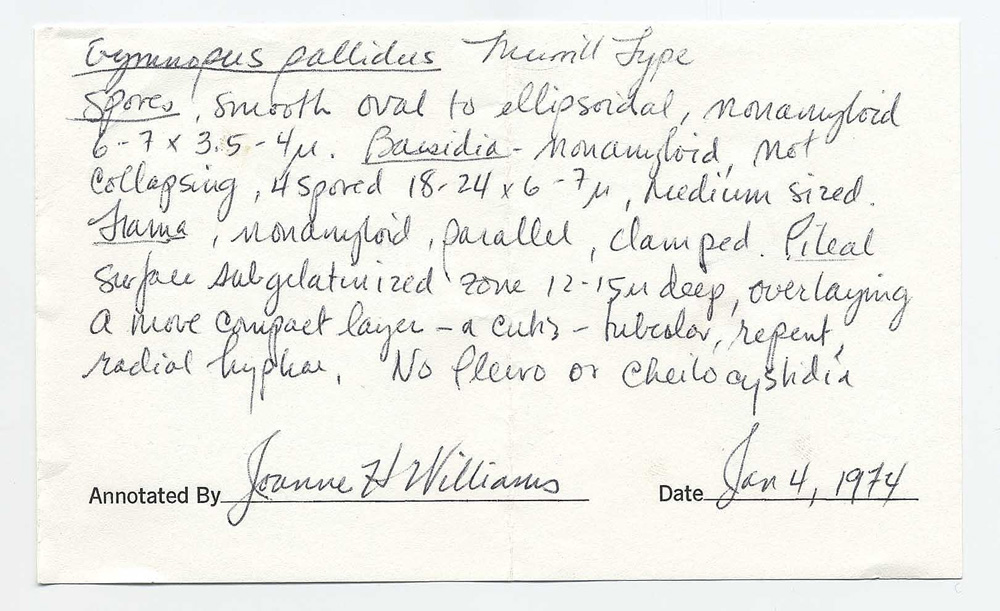 Gymnopus pallidus Murrill Type
Spores, smooth oval to ellipsoidal, nonamyloid
6-7 x 3.5-4µ. Basidia - nonamyloid, not
collapsing, 4 spored 18-24 x 6-7µ, medium sized.
Trama, nonamyloid, parallel, clamped. Pileal
surface subgelatinized zone 12-15µ deep, overlaying
a more compact layer - a cutis - tubular, repent,
radial hyphae. No Pleuro or cheilocystidia
Annotated By Joanne H Williams Date Jan 4, 1974